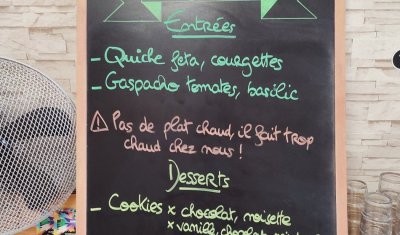 Entrées
- Quiche feta, courgettes
- Gaspacho tomates, basilic
⚠ Pas de plat chaud, il fait trop
chaud chez nous !
Desserts
- Cookies x chocolat, noisette
x vanille, chocolat